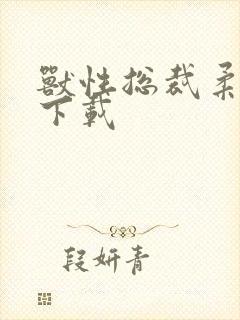 獸性总裁柔
下載
段妍青